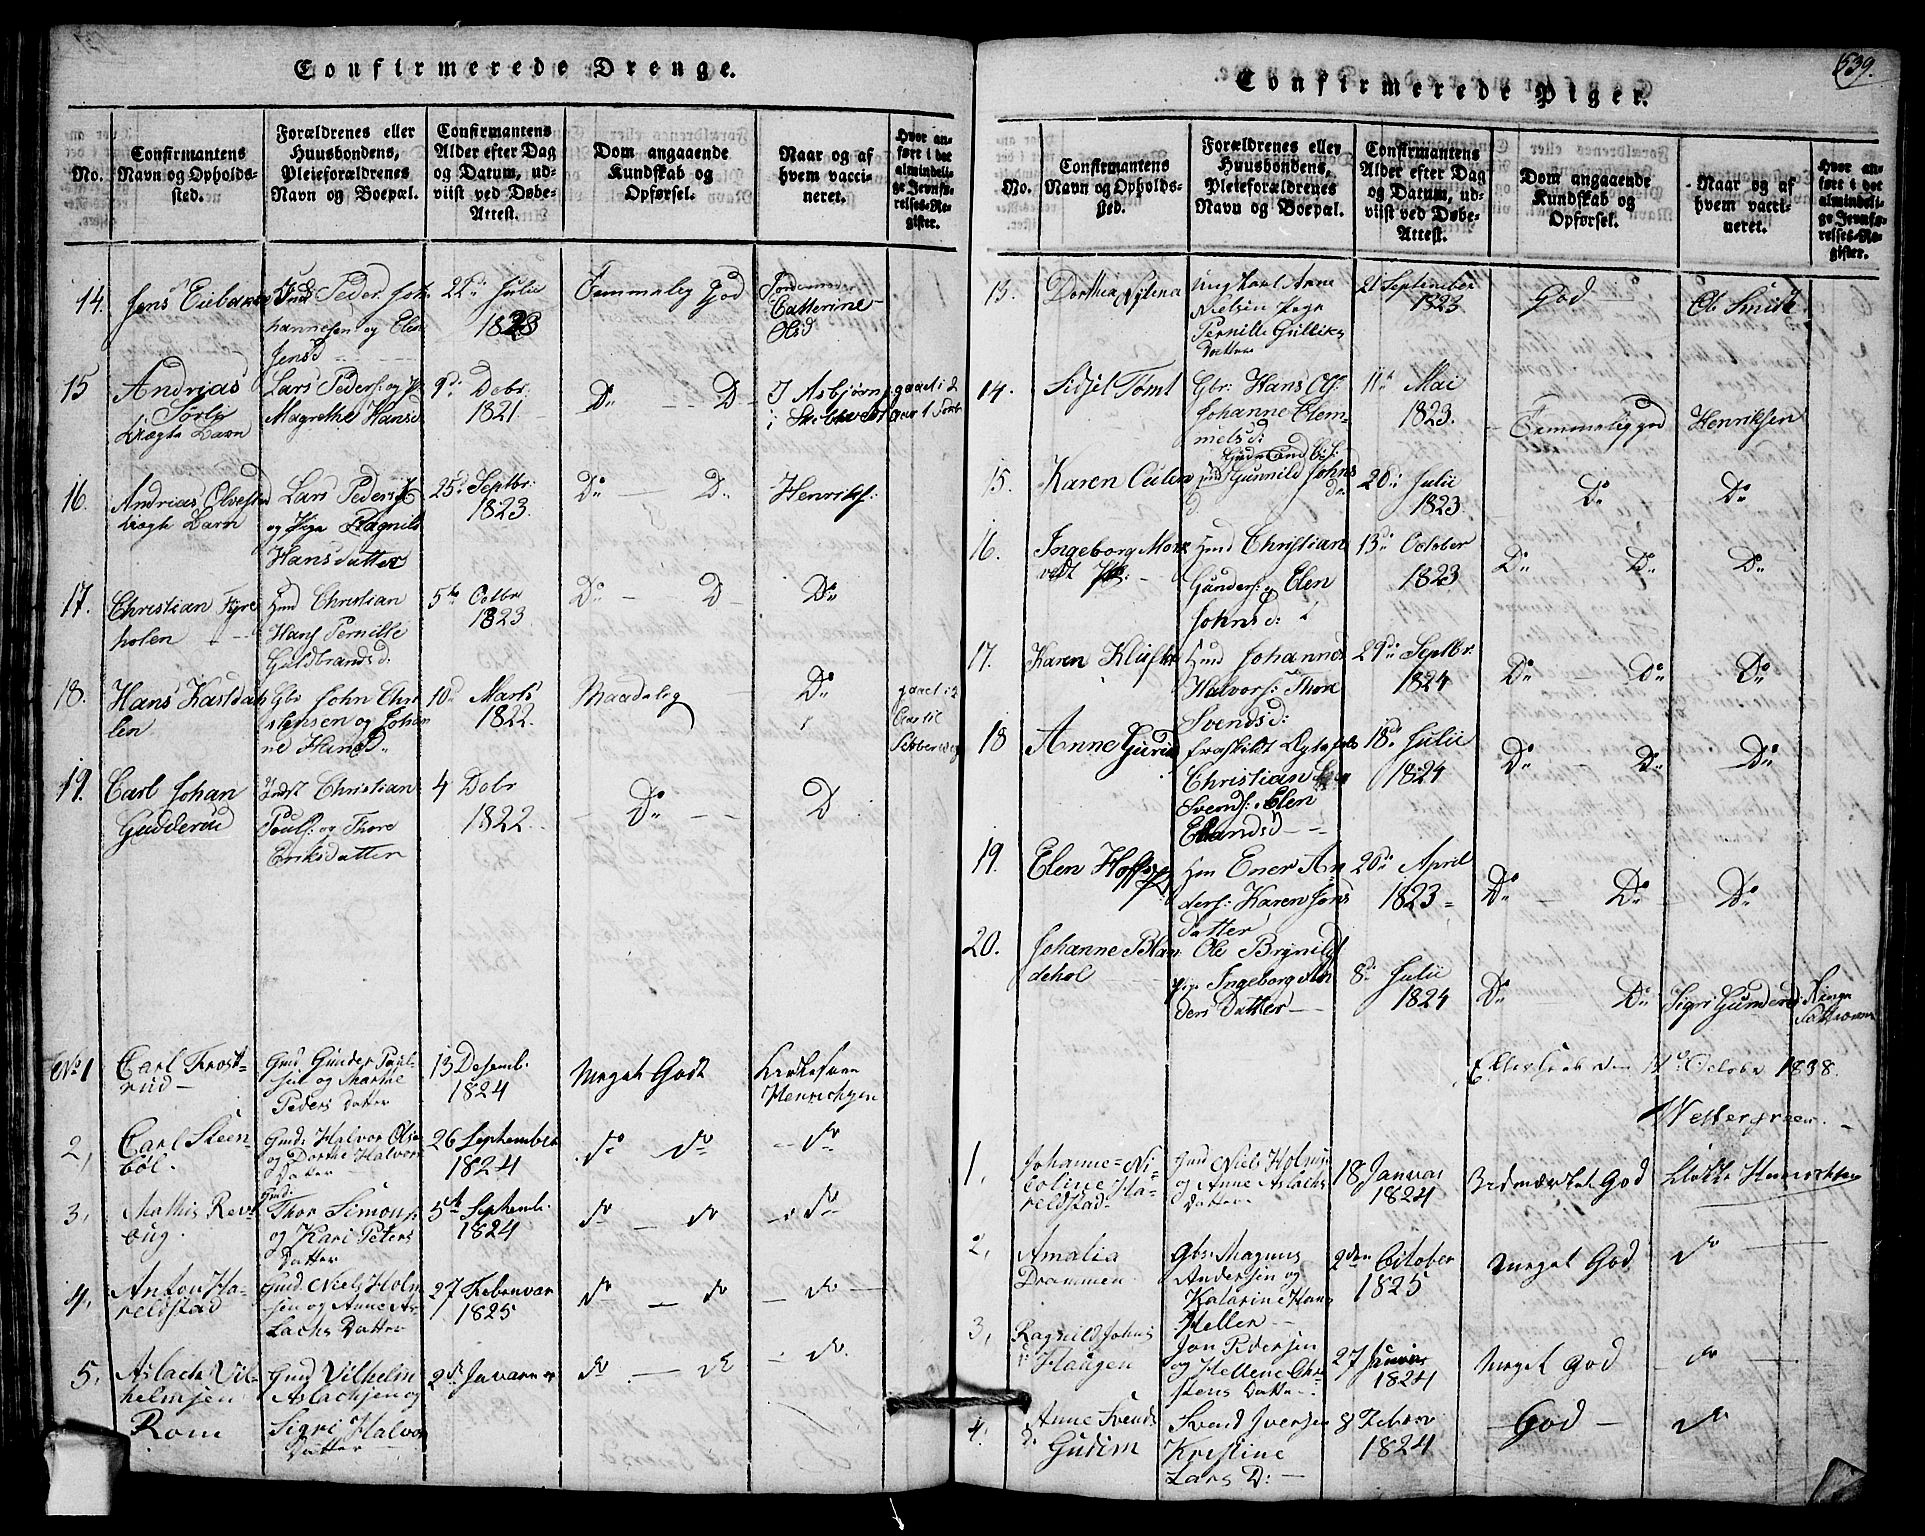 Confirmerede Drenge.
No.
Confirmantens
Navn og Opholds-
sted.
Forældrenes eller
Huusbondens,
Pleieforældrenes
Navn og Boepæl.
Confirmantens
Alder efter Dag
og Datum, ud-
viist ved Døbe-
Attest.
Dom angaaende
Kundskab og
Opførsel.
Naar og af
hvem vacci-
neret.
Hvor an-
ført i det
almindeli-
ge Jevnfø-
relses-Re-
gister.
14.
Jens
Peder Jo-
hannesen og Elen
Jensd
22de Julie
1823
Temmelig God
Jordemoder
Catherine
Olsd
15
Andrias
Lars Peders: og
Magrethe Hansd
9de Dcbr
1821.
Do — D
J Asbjørns
16.
Andrias
Lars Peders
og Pige Ragnild
Hansdatter
25d Septbr:
1823.
Do — Do
Henriks:
17.
Christian Fyre
holen
Hmd Christian
Hans Pernille
Guldbrandsd.
5te Octbr
1823
Do — D
Do
18.
Hans Kastda
len
Gbr John Chri
stensen og Johan
ne Hansd
10d Marts
1822.
Maadelig
Do
19.
Carl Johan
Gudderud
Indst Christian
Pouls: og Thore
Eriksdatter
4 Dcbr
1822.
Do
D
No 1
Carl Frost-
rud
Gmd. Gunder Paul-
sen og Marthe
Peders datter
13 Desemb.
1824
Meget Godt
Kirkesan
Henrichsen
2,
Carl Steen-
böl.
Gmd: Halvor Olse
og Dorthe Halvor
Datter
26 September
1824
do do
do
3,
Mathis Rev-
oug.
Gmd:
Thor Simons:
og Kari Peters
Datter
5te Septemb.
1824
do — do
do
4,
Anton Ha-
reldstad
Gmd. Niels Holm
sen og Anne As-
lachs Datter
27 Februar
1825
do — do
do
5,
Aslach Vil-
helmsen
Rom
Gmd Vilhelm
Aslachsen og
Sigri Halvor
Datter
2de Januar
do — do
do
539.
Confirmerede Piger.
No.
Confirmantens
Navn og Opholds-
sted.
Forældrenes eller
Huusbondens,
Pleieforældrenes
Navn og Boepæl.
Confirmantens
Alder efter Dag
og Datum, ud-
viist ved Døbe-
Attest.
Dom angaaende
Kundskab og
Opførsel.
Naar og af
hvem vacci-
neret.
Hvor an-
ført i det
almindeli-
ge Jevnfø-
relses-Re-
gister.
13.
Dorthea
Ungkarl Arne
Nielsen Pige
Pernille Gulliks
Datter
21 September
1823
God
Ol Smith
14.
Sidsel Tomt
Gbr: Hans Ols
Johanne Clem-
metsd:
11te Mai
1823.
Temmelig god
Henriksen
15.
Karen
Gunnild Johns
d:
20de Julii
1823
Do
Do
16.
Ingeborg Mork
vedt
Hmd Christian
Gunders: og Elen
Johnsd:
13de October
1823
Do Do
Do
17.
Karen
Hmd Johannes
Halvors: Thore
Svendsd:
29de Septbr
1824
Do — Do
Do
18
Anne Guria
Christian
Svends: Elen
Erlandsd
18de Julii
1824
Do — Do
Do
19.
Elen Hoff
Hm Ener An
ders: Karen Jens
Datter
20de April
1823
Do — Do
Do
20.
Johanne Blan
dehol
Ole Brynilds
Pige Ingeborg An
ders Datter
8de Julii
1824
Do — Do
Sigri Gunders
October 1838.
Wettergreen.
1,
Johanne Ni-
coline Ha-
reldstad
Gmd Niels Holms:
og Anne Aslachs
Datter
18 Januar
1824
Bedmærket God
Klokker Henrichsen
2,
Amalia
Drammen
Gbr Magnus
Andersen og
Katarine Hans
2den October
1825
Meget God
do
3,
Ragnild Johns
d: Haugen
Jon Iversen
og Hellene Chri-
stens Datter
27 Januar
1824
Meget God
do
4,
Anne Svends
d. Gudim
Svend Iversen
Kristine
Lars D:
8 Februar
1824
God
do